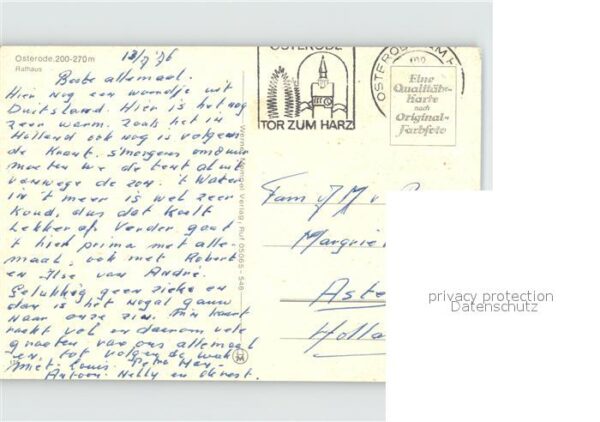 Osterode, 200-270 m
Rathaus
13/7 '76
Beste allemaal.
Hier nog een woordje uit
Duitsland. Hier is het nog
zeer warm. Zoals het in
Holland ook nog is volgens
de krant. s'morgens om
moeten we de tent al uit
vanwege de zon. 't Water
in 't meer is wel zeer
koud, dus dat koelt
lekker af. Verder gaat
't hier prima met alle-
maal, ook met Robert
en Ilse van André.
Gelukkig geen zieke en
dan is het nogal gauw
naar onze zin. M'n kaart
raakt vol en daarom vele
groeten van ons allemaal
en tot volgende week
Miet. Louis. Petra
Antoon. Nelly en de rest.
Verlag, Ruf 05065-546
OSTERODE
TOR ZUM HARZ
OSTERODE AM H
Eine
Qualitäts-
Karte
nach
Original-
Farbfoto
Fam J M v
Margrie
Aste
Holla
privacy protection
Datenschutz